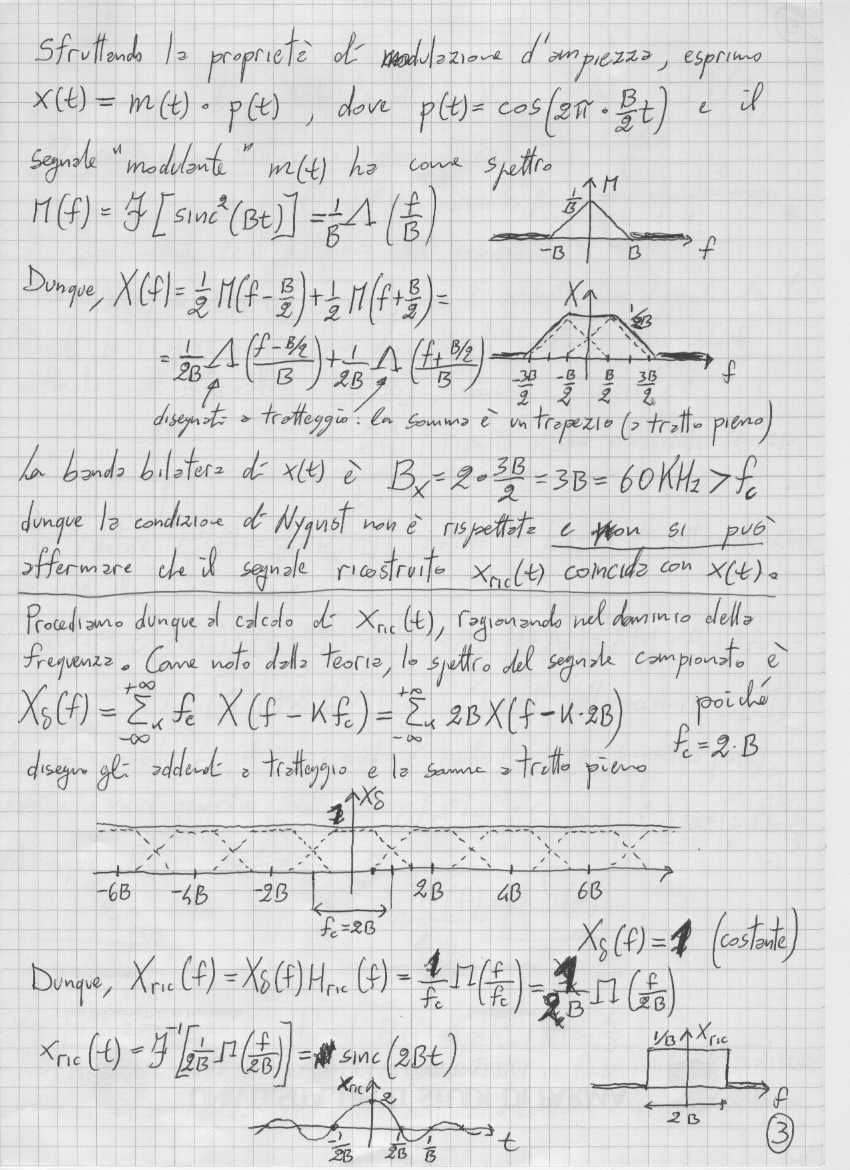 Sfruttando la proprietà di modulazione d'ampiezza, esprimo
x(t) = m(t) · p(t) , dove p(t) = cos(2π · B/2 t) e il
segnale "modulante" m(t) ha come spettro
M(f) = ℱ[sinc²(Bt)] = 1/B Λ(f/B)
1/B M
-B B f
Dunque, X(f) = 1/2 M(f - B/2) + 1/2 M(f + B/2) =
X 1/2B
= 1/2B Λ((f - B/2)/B) + 1/2B Λ((f + B/2)/B)
-3B/2 -B/2 B/2 3B/2 f
disegnati a tratteggio: la somma è un trapezio (a tratto pieno)
La banda bilatera di x(t) è Bx = 2 · 3B/2 = 3B = 60 KHz > fc
dunque la condizione di Nyquist non è rispettata e non si può
affermare che il segnale ricostruito xric(t) coincida con x(t).
Procediamo dunque al calcolo di xric(t), ragionando nel dominio della
frequenza. Come noto dalla teoria, lo spettro del segnale campionato è
Xδ(f) = Σk -∞ +∞ fc X(f - Kfc) = Σk -∞ +∞ 2B X(f - K·2B) poiché
fc = 2·B
disegno gli addendi a tratteggio e la somma a tratto pieno
1 Xδ
-6B -4B -2B 2B 4B 6B
fc = 2B
Xδ(f) = 1 (costante)
Dunque, Xric(f) = Xδ(f) Hric(f) = 1/fc Π(f/fc) = 1/2B Π(f/2B)
xric(t) = ℱ⁻¹[1/2B Π(f/2B)] = sinc(2Bt)
1/B Xric
f
2B
xric 2
-1/2B 1/2B 1/B t
3